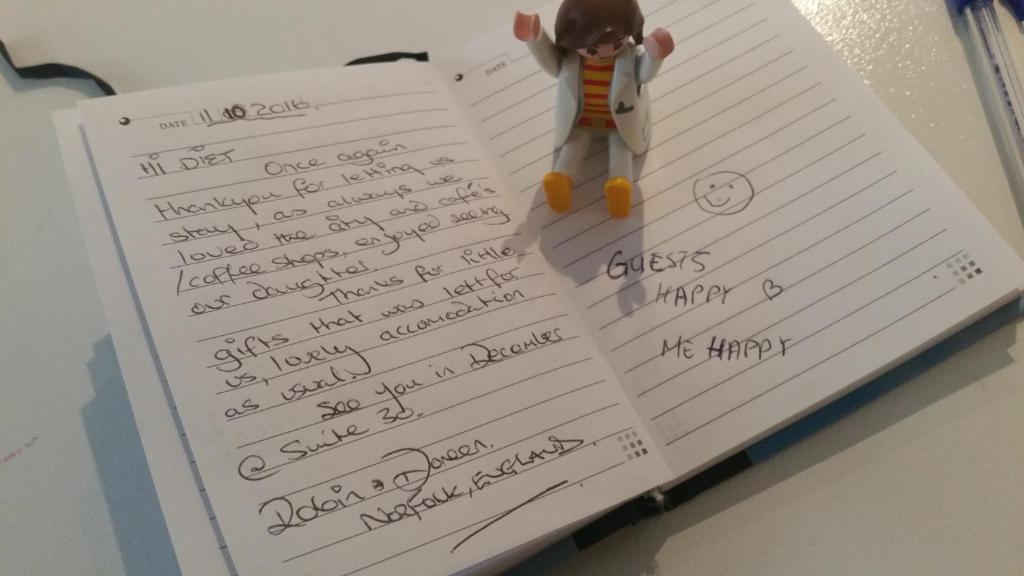 DATE 11 10 2016.
Hi DIET
Once again
thankyou for letting us
stay, as always we
loved the city and café's
/coffee shops, enjoyed seeing
our daughter.
Thanks for little
gifts that was left for
us, lovely accomodation
as usual.
See you in December
@ Suite 30.
Robin & Doreen.
NORFOLK, ENGLAND.
DATE
GUESTS
HAPPY
ME HAPPY